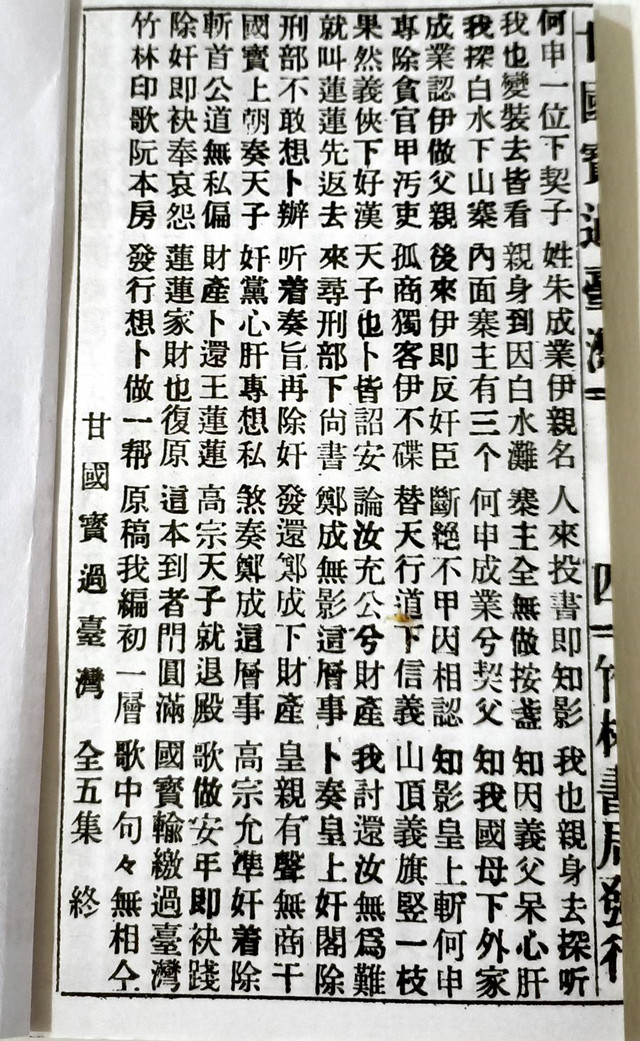 甘國寶過臺灣 四 竹林書局發行
何申一位下契子 姓朱成業伊親名 人來投書即知影 我也親身去探听
我也變裝去皆看 親身到因白水灘 寨主全無做按盞 知因義父呆心肝
我探白水下山寨 內面寨主有三个 何申成業兮契父 知我國母下外家
成業認伊做父親 後來伊即反奸臣 斷絕不甲因相認 知影皇上斬何申
專除貪官甲污吏 孤商獨客伊不碟 替天行道下信義 山頂義旗竪一枝
果然義俠下好漢 天子也卜皆詔安 論汝充公兮財產 我討還汝無為難
就叫蓮蓮先返去 來尋刑部下尙書 鄭成無影這層事 卜奏皇上奸閣除
刑部不敢想卜辦 听着奏旨再除奸 發還鄭成下財產 皇親有聲無商干
國寶上朝奏天子 奸黨心肝專想私 煞奏鄭成這層事 高宗允準奸着除
斬首公道無私偏 財產卜還王蓮蓮 高宗天子就退殿 歌做安年即袂踐
除奸即袂奉哀怨 蓮蓮家財也復原 這本到者門圓滿 國寶輸繳過臺灣
竹林印歌阮本房 發行想卜做一帮 原稿我編初一層 歌中句々無相仝
甘國寶過臺灣 全五集 終